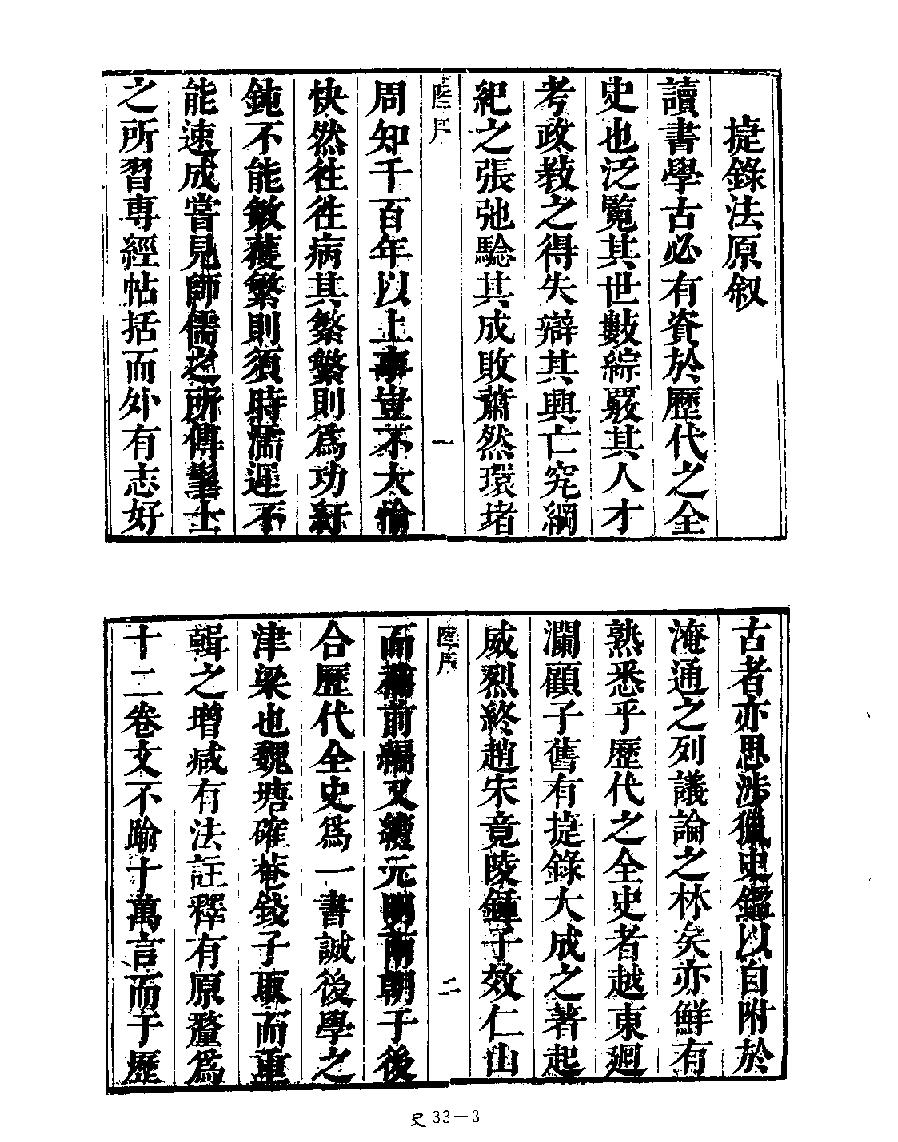 捷錄法原叙
讀書學古必有資於歷代之全
史也泛覽其世數綜嚴其人才
考政教之得失辯其興亡究綱
紀之張弛騐其成敗蕭然環堵
陸序
一
周知千百年以上事豈不大愉
快然徃徃病其繁繁則爲功紆
鈍不能敏蒦繁則須時濡遲不
能速成嘗見師儒之所傳髦士
之所習専經帖括而外有志好
古者亦思涉獵史鑑以自附於
淹通之列議論之林矣亦鮮有
熟悉乎歷代之全史者越東廻
瀾顧子舊有捷錄大成之著起
威烈終趙宋竟陵鍾子效仁山
陸序
二
而補前編又續元明兩朝于後
合歷代全史爲一書誠後學之
津梁也魏塘確菴錢子取而重
輯之增减有法註釋有原釐爲
十二卷文不踰十萬言而于歷
史 33－3